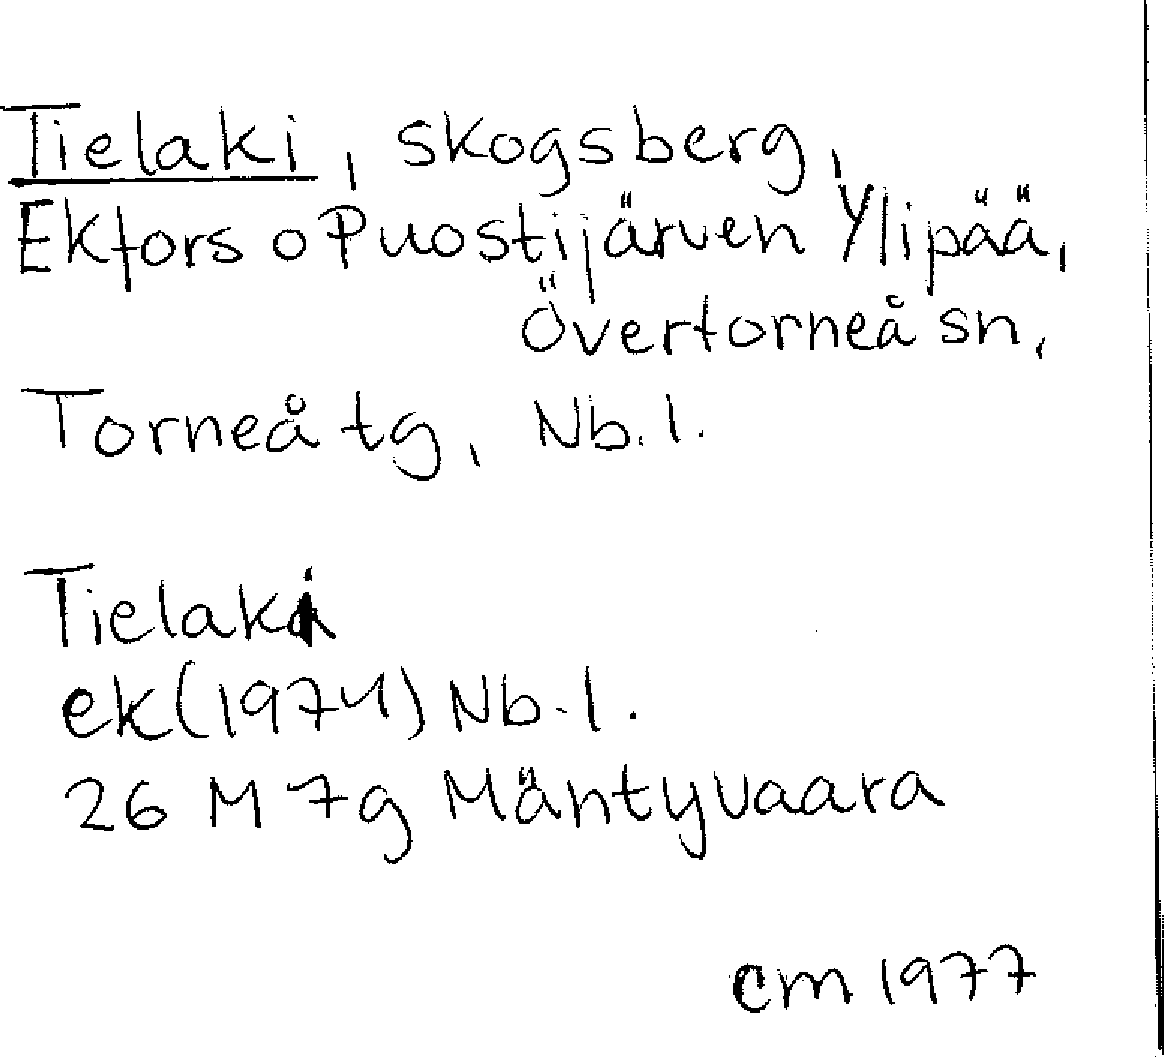 Tielaki, skogsberg,
Ekfors o Puostijärven Ylipää,
Övertorneå sn,
Torneå tg, Nb.l.
Tielaki
ek(1974) Nb.l.
26 M 7g Mäntyvaara
CM 1977